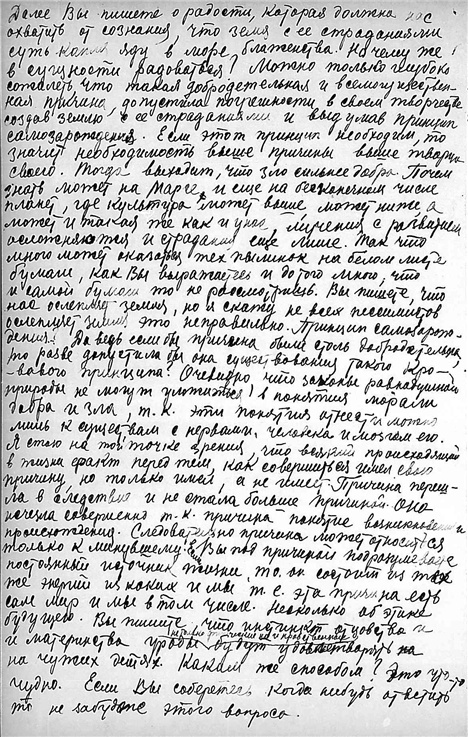 Далее Вы пишете о радости, которая должна нас
охватить от сознания, что земля с ее страданиями
суть капля яду в море блаженства. Но чему же
в сущности радоваться? Можно только глубоко
сожалеть что такая добродетельная и всемогуществен-
ная причина, допустила погрешности в своем творчестве
создав землю с ее страданиями и выдумав принцип
самозарождения. Если этот принцип необходим, то
значит необходимость выше причины выше творца
своего. Тогда выходит, что зло сильнее добра. Почем
знать может на Марсе, и еще на бесконечном числе
планет, где культура может выше может ниже а
может и такая же как и у нас, мучения с развитием
осложняются и страдания еще лише. Так что
много может оказаться тех пылинок на белом листе
бумаги, как Вы выражаетесь и до того много, что
и самой бумаги то не рассмотришь. Вы пишете, что
нас ослепляет земля, но я скажу не всех пессимистов
ослепляет земля это неправильно. Принцип самозарож-
дения! Да ведь если бы причина была столь добродетельна,
то разве допустила бы она существования такого кро-
вавого принципа? Очевидно, что законы равнодушной
природы не могут уложиться в понятия морали
добра и зла, т.к. эти понятия отнести можно
лишь к существам с нервами человека и мозгом его.
Я стою на той точке зрения, что всякий происходящий
в жизни факт перед тем, как совершиться имел свою
причину, но только имел, а не имеет. Причина переш-
ла в следствие и не стала больше причиной. Она
исчезла совершенно т.к. причина понятие возникновения
происхождения. Следовательно причина может относиться
только к минувшему. Вы под причиной подразумеваете
постоянный источник жизни, то он состоит из тех
же энергий из каких и мы, т.е. эта причина есть
сам мир и мы в том числе. Несколько об этике
будущего. Вы пишите, что инстинкт отцовства и
и материнства уроды будут удовлетворять на
на чужих детях. Каким же способом? Это что-то
чудно. Если Вы соберетесь когда нибудь ответить
то не забудьте этого вопроса.